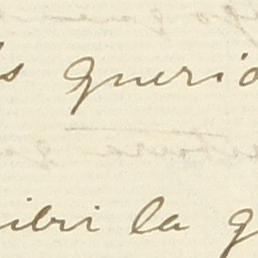 s querid
ibri la q